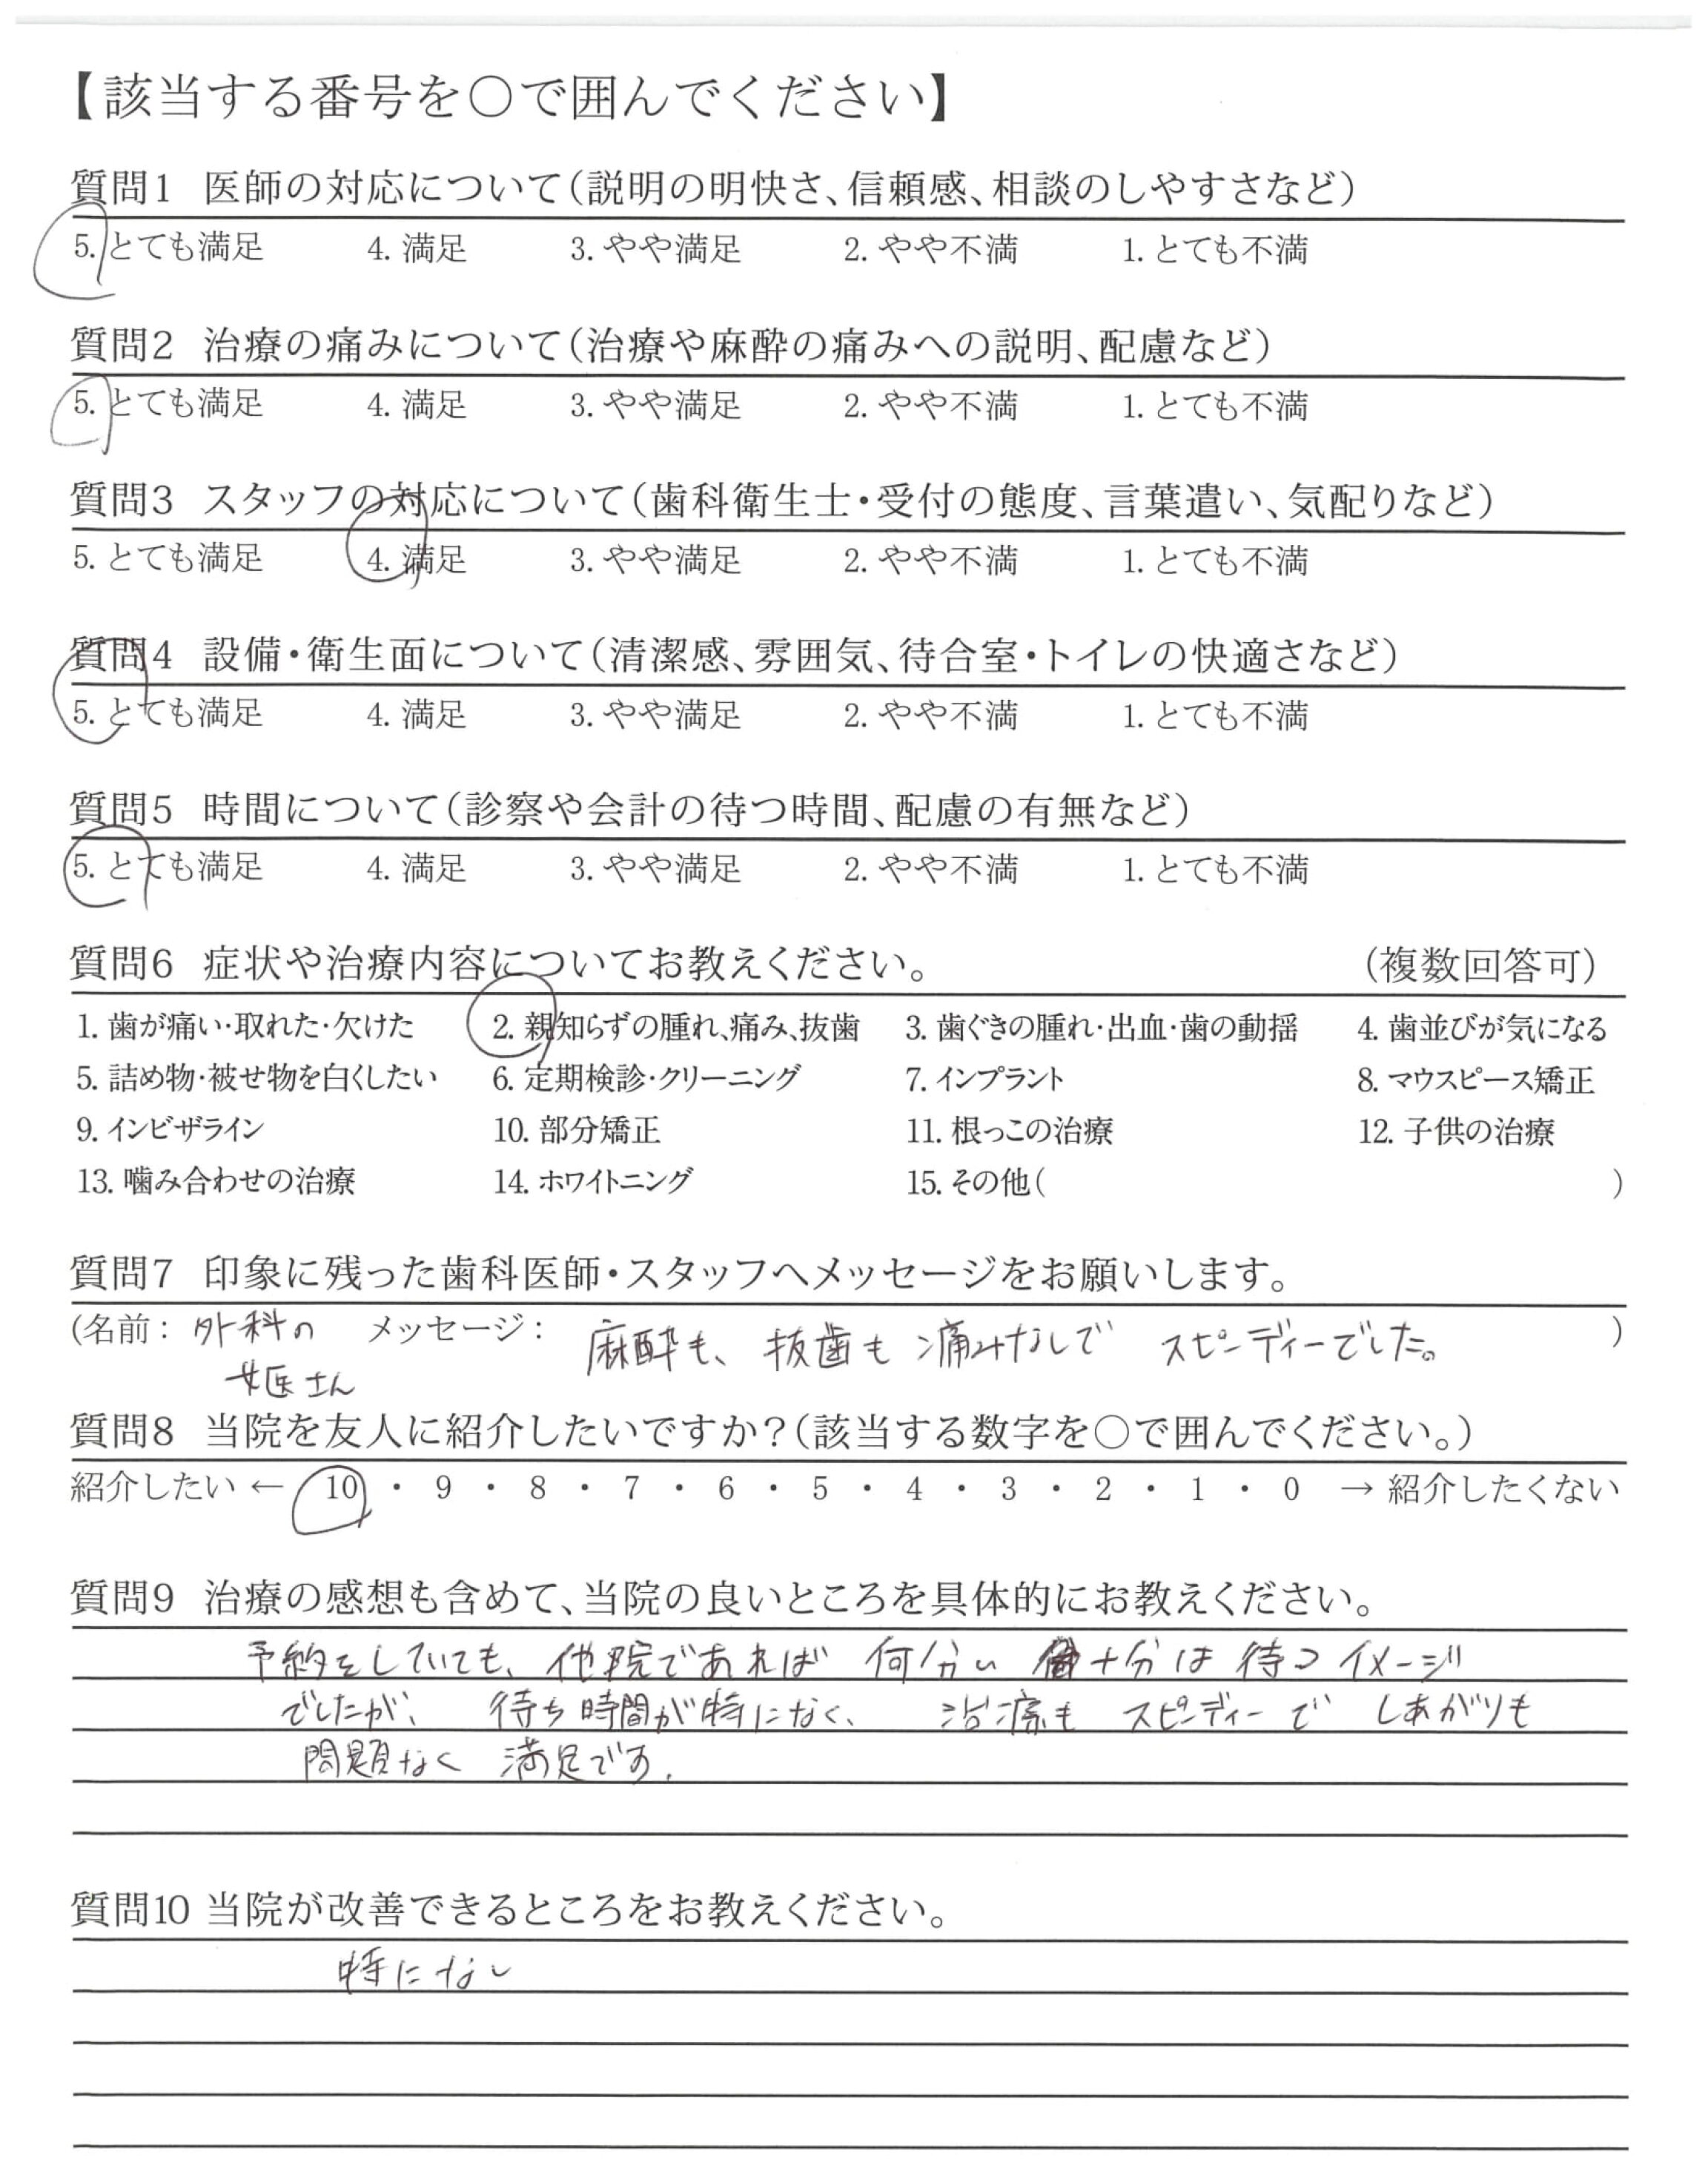 【該当する番号を○で囲んでください】
質問1 医師の対応について(説明の明快さ、信頼感、相談のしやすさなど)
5. とても満足 4. 満足 3. やや満足 2. やや不満 1. とても不満
質問2 治療の痛みについて(治療や麻酔の痛みへの説明、配慮など)
5. とても満足 4. 満足 3. やや満足 2. やや不満 1. とても不満
質問3 スタッフの対応について(歯科衛生士・受付の態度、言葉遣い、気配りなど)
5. とても満足 4. 満足 3. やや満足 2. やや不満 1. とても不満
質問4 設備・衛生面について(清潔感、雰囲気、待合室・トイレの快適さなど)
5. とても満足 4. 満足 3. やや満足 2. やや不満 1. とても不満
質問5 時間について(診察や会計の待つ時間、配慮の有無など)
5. とても満足 4. 満足 3. やや満足 2. やや不満 1. とても不満
質問6 症状や治療内容についてお教えください。 (複数回答可)
1. 歯が痛い・取れた・欠けた 2. 親知らずの腫れ、痛み、抜歯 3. 歯ぐきの腫れ・出血・歯の動揺 4. 歯並びが気になる
5. 詰め物・被せ物を白くしたい 6. 定期検診・クリーニング 7. インプラント 8. マウスピース矯正
9. インビザライン 10. 部分矯正 11. 根っこの治療 12. 子供の治療
13. 噛み合わせの治療 14. ホワイトニング 15. その他( )
質問7 印象に残った歯科医師・スタッフへメッセージをお願いします。
(名前: 外科の メッセージ: 麻酔も、抜歯も痛みなしで スピーディーでした。 )
女医さん
質問8 当院を友人に紹介したいですか?(該当する数字を○で囲んでください。)
紹介したい ← 10 ・ 9 ・ 8 ・ 7 ・ 6 ・ 5 ・ 4 ・ 3 ・ 2 ・ 1 ・ 0 → 紹介したくない
質問9 治療の感想も含めて、当院の良いところを具体的にお教えください。
予約をしていても、他院であれば 何分い 十分は 待つ イメージ
でしたが、 待ち時間が特になく、 治療も スピーディーで しあがりも
問題なく 満足です.
質問10 当院が改善できるところをお教えください。
特になし